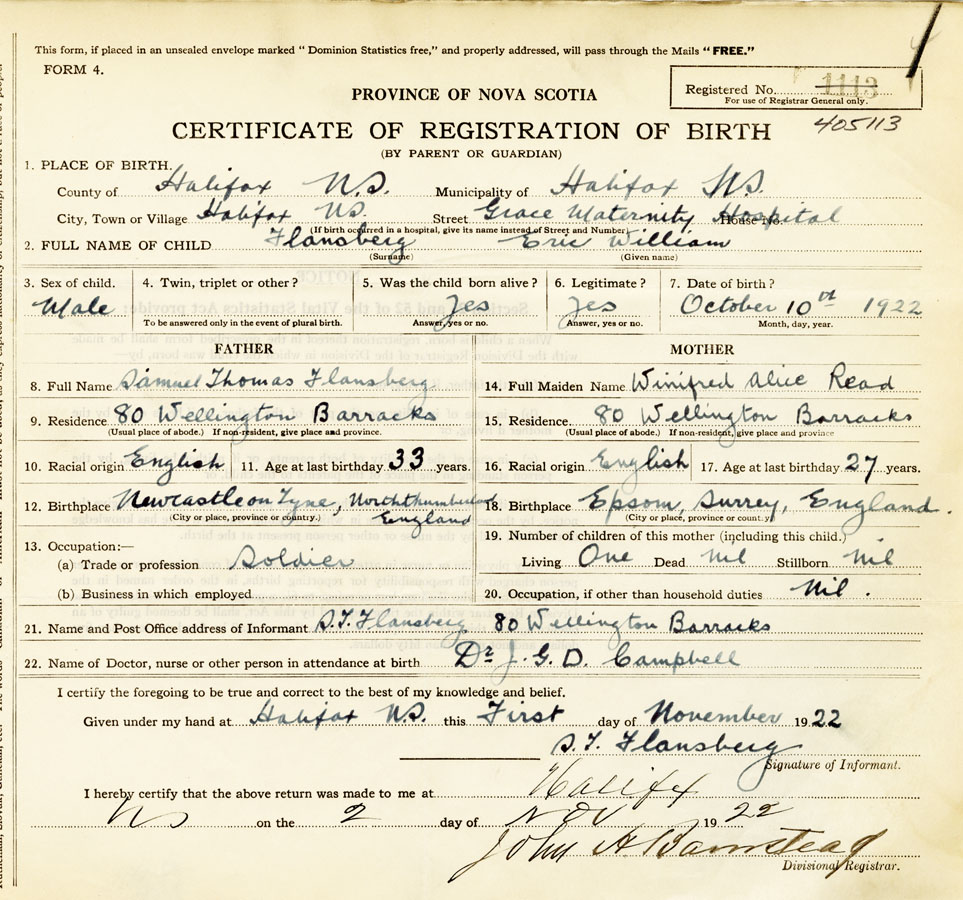 This form, if placed in an unsealed envelope marked "Dominion Statistics free," and properly addressed, will pass through the Mails "FREE."
FORM 4.
Registered No. 1113
For use of Registrar General only.
PROVINCE OF NOVA SCOTIA
405113
CERTIFICATE OF REGISTRATION OF BIRTH
(BY PARENT OR GUARDIAN)
1. PLACE OF BIRTH.
County of Halifax N.S. Municipality of Halifax N.S.
City, Town or Village Halifax N.S. Street Grace Maternity Hospital House No.
(If birth occurred in a hospital, give its name instead of Street and Number)
2. FULL NAME OF CHILD Flansberg Eric William
(Surname) (Given name)
3. Sex of child. 4. Twin, triplet or other? 5. Was the child born alive? 6. Legitimate? 7. Date of birth?
Male Yes Yes October 10th 1922
To be answered only in the event of plural birth. Answer, yes or no. Answer, yes or no. Month, day, year.
FATHER MOTHER
8. Full Name Samuel Thomas Flansberg 14. Full Maiden Name Winifred Alice Read
9. Residence 80 Wellington Barracks 15. Residence 80 Wellington Barracks
(Usual place of abode.) If non-resident, give place and province. (Usual place of abode.) If non-resident, give place and province
10. Racial origin English 11. Age at last birthday 33 years. 16. Racial origin English 17. Age at last birthday 27 years.
12. Birthplace Newcastle on Tyne, Norththumberland England 18. Birthplace Epsom, Surrey, England.
(City or place, province or country.) (City or place, province or county)
13. Occupation:— 19. Number of children of this mother (including this child.)
(a) Trade or profession Soldier Living One Dead Nil Stillborn Nil
(b) Business in which employed 20. Occupation, if other than household duties Nil.
21. Name and Post Office address of Informant S.T. Flansberg 80 Wellington Barracks
22. Name of Doctor, nurse or other person in attendance at birth Dr J. G. D. Campbell
I certify the foregoing to be true and correct to the best of my knowledge and belief.
Given under my hand at Halifax N.S. this First day of November 1922
S. T. Flansberg
Signature of Informant.
I hereby certify that the above return was made to me at Halifx
NS on the 2 day of Nov 1922
John A Barnstead
Divisional Registrar.